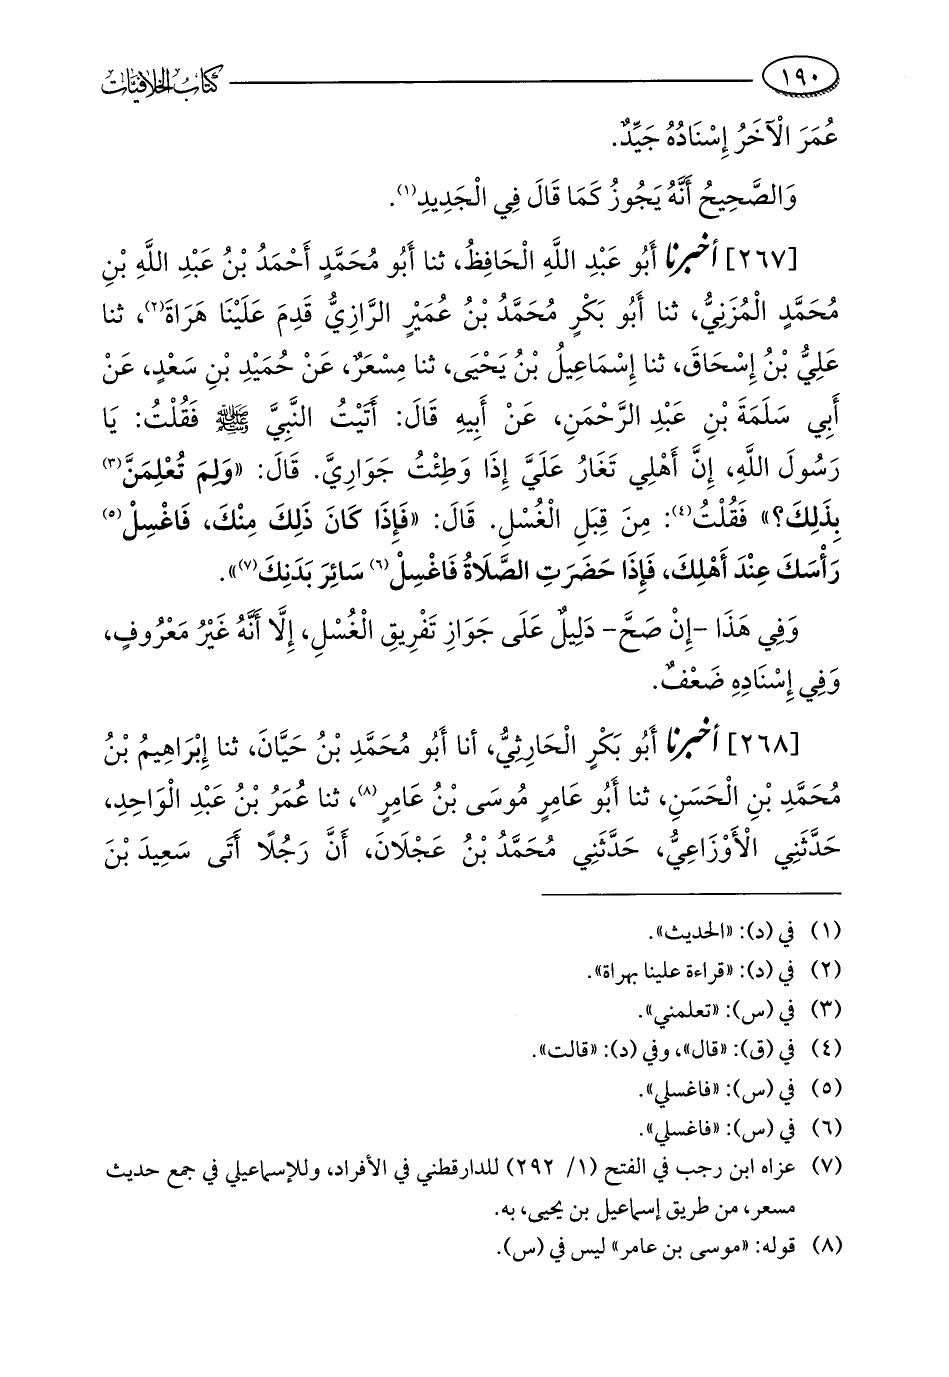 ١٩٠ كتاب الخلافيات
عُمَرَ الْآخَرُ إِسْنَادُهُ جَيِّدٌ.
وَالصَّحِيحُ أَنَّهُ يَجُوزُ كَمَا قَالَ فِي الْجَدِيدِ(١).
[٢٦٧] أخبرنا أَبُو عَبْدِ اللَّهِ الْحَافِظُ، ثنا أَبُو مُحَمَّدٍ أَحْمَدُ بْنُ عَبْدِ اللهِ بْنِ
مُحَمَّدٍ الْمُزَنِيُّ، ثنا أَبُو بَكْرٍ مُحَمَّدُ بْنُ عُمَيْرٍ الرَّازِيُّ قَدِمَ عَلَيْنَا هَرَاةَ(٢)، ثنا
عَلِيُّ بْنُ إِسْحَاقَ، ثنا إِسْمَاعِيلُ بْنُ يَحْيَى، ثنا مِسْعَرٌ، عَنْ حُمَيْدِ بْنِ سَعْدٍ، عَنْ
أَبِي سَلَمَةَ بْنِ عَبْدِ الرَّحْمَنِ، عَنْ أَبِيهِ قَالَ: أَتَيْتُ النَّبِيَّ ﷺ فَقُلْتُ: يَا
رَسُولَ اللهِ، إِنَّ أَهْلِي تَغَارُ عَلَيَّ إِذَا وَطِئْتُ جَوَارِيَّ. قَالَ: «وَلِمَ تُعْلِمَنَّ(٣)
بِذَلِكَ؟» فَقُلْتُ(٤): مِنَ قِبَلِ الْغُسْلِ. قَالَ: «فَإِذَا كَانَ ذَلِكَ مِنْكَ، فَاغْسِلْ(٥)
رَأْسَكَ عِنْدَ أَهْلِكَ، فَإِذَا حَضَرَتِ الصَّلَاةُ فَاغْسِلْ(٦) سَائِرَ بَدَنِكَ(٧)».
وَفِي هَذَا -إِنْ صَحَّ- دَلِيلٌ عَلَى جَوَازِ تَفْرِيقِ الْغُسْلِ، إِلَّا أَنَّهُ غَيْرُ مَعْرُوفٍ،
وَفِي إِسْنَادِهِ ضَعْفٌ.
[٢٦٨] أخبرنا أَبُو بَكْرٍ الْحَارِثِيُّ، أنا أَبُو مُحَمَّدِ بْنُ حَيَّانَ، ثنا إِبْرَاهِيمُ بْنُ
مُحَمَّدِ بْنِ الْحَسَنِ، ثنا أَبُو عَامِرٍ مُوسَى بْنُ عَامِرٍ(٨)، ثنا عُمَرُ بْنُ عَبْدِ الْوَاحِدِ،
حَدَّثَنِي الْأَوْزَاعِيُّ، حَدَّثَنِي مُحَمَّدُ بْنُ عَجْلَانَ، أَنَّ رَجُلًا أَتَى سَعِيدَ بْنَ
(١) في (د): «الحديث».
(٢) في (د): «قراءة علينا بهراة».
(٣) في (س): «تعلمني».
(٤) في (ق): «قال»، وفي (د): «قالت».
(٥) في (س): «فاغسلي».
(٦) في (س): «فاغسلي».
(٧) عزاه ابن رجب في الفتح (١/ ٢٩٢) للدارقطني في الأفراد، وللإسماعيلي في جمع حديث
مسعر، من طريق إسماعيل بن يحيى، به.
(٨) قوله: «موسى بن عامر» ليس في (س).